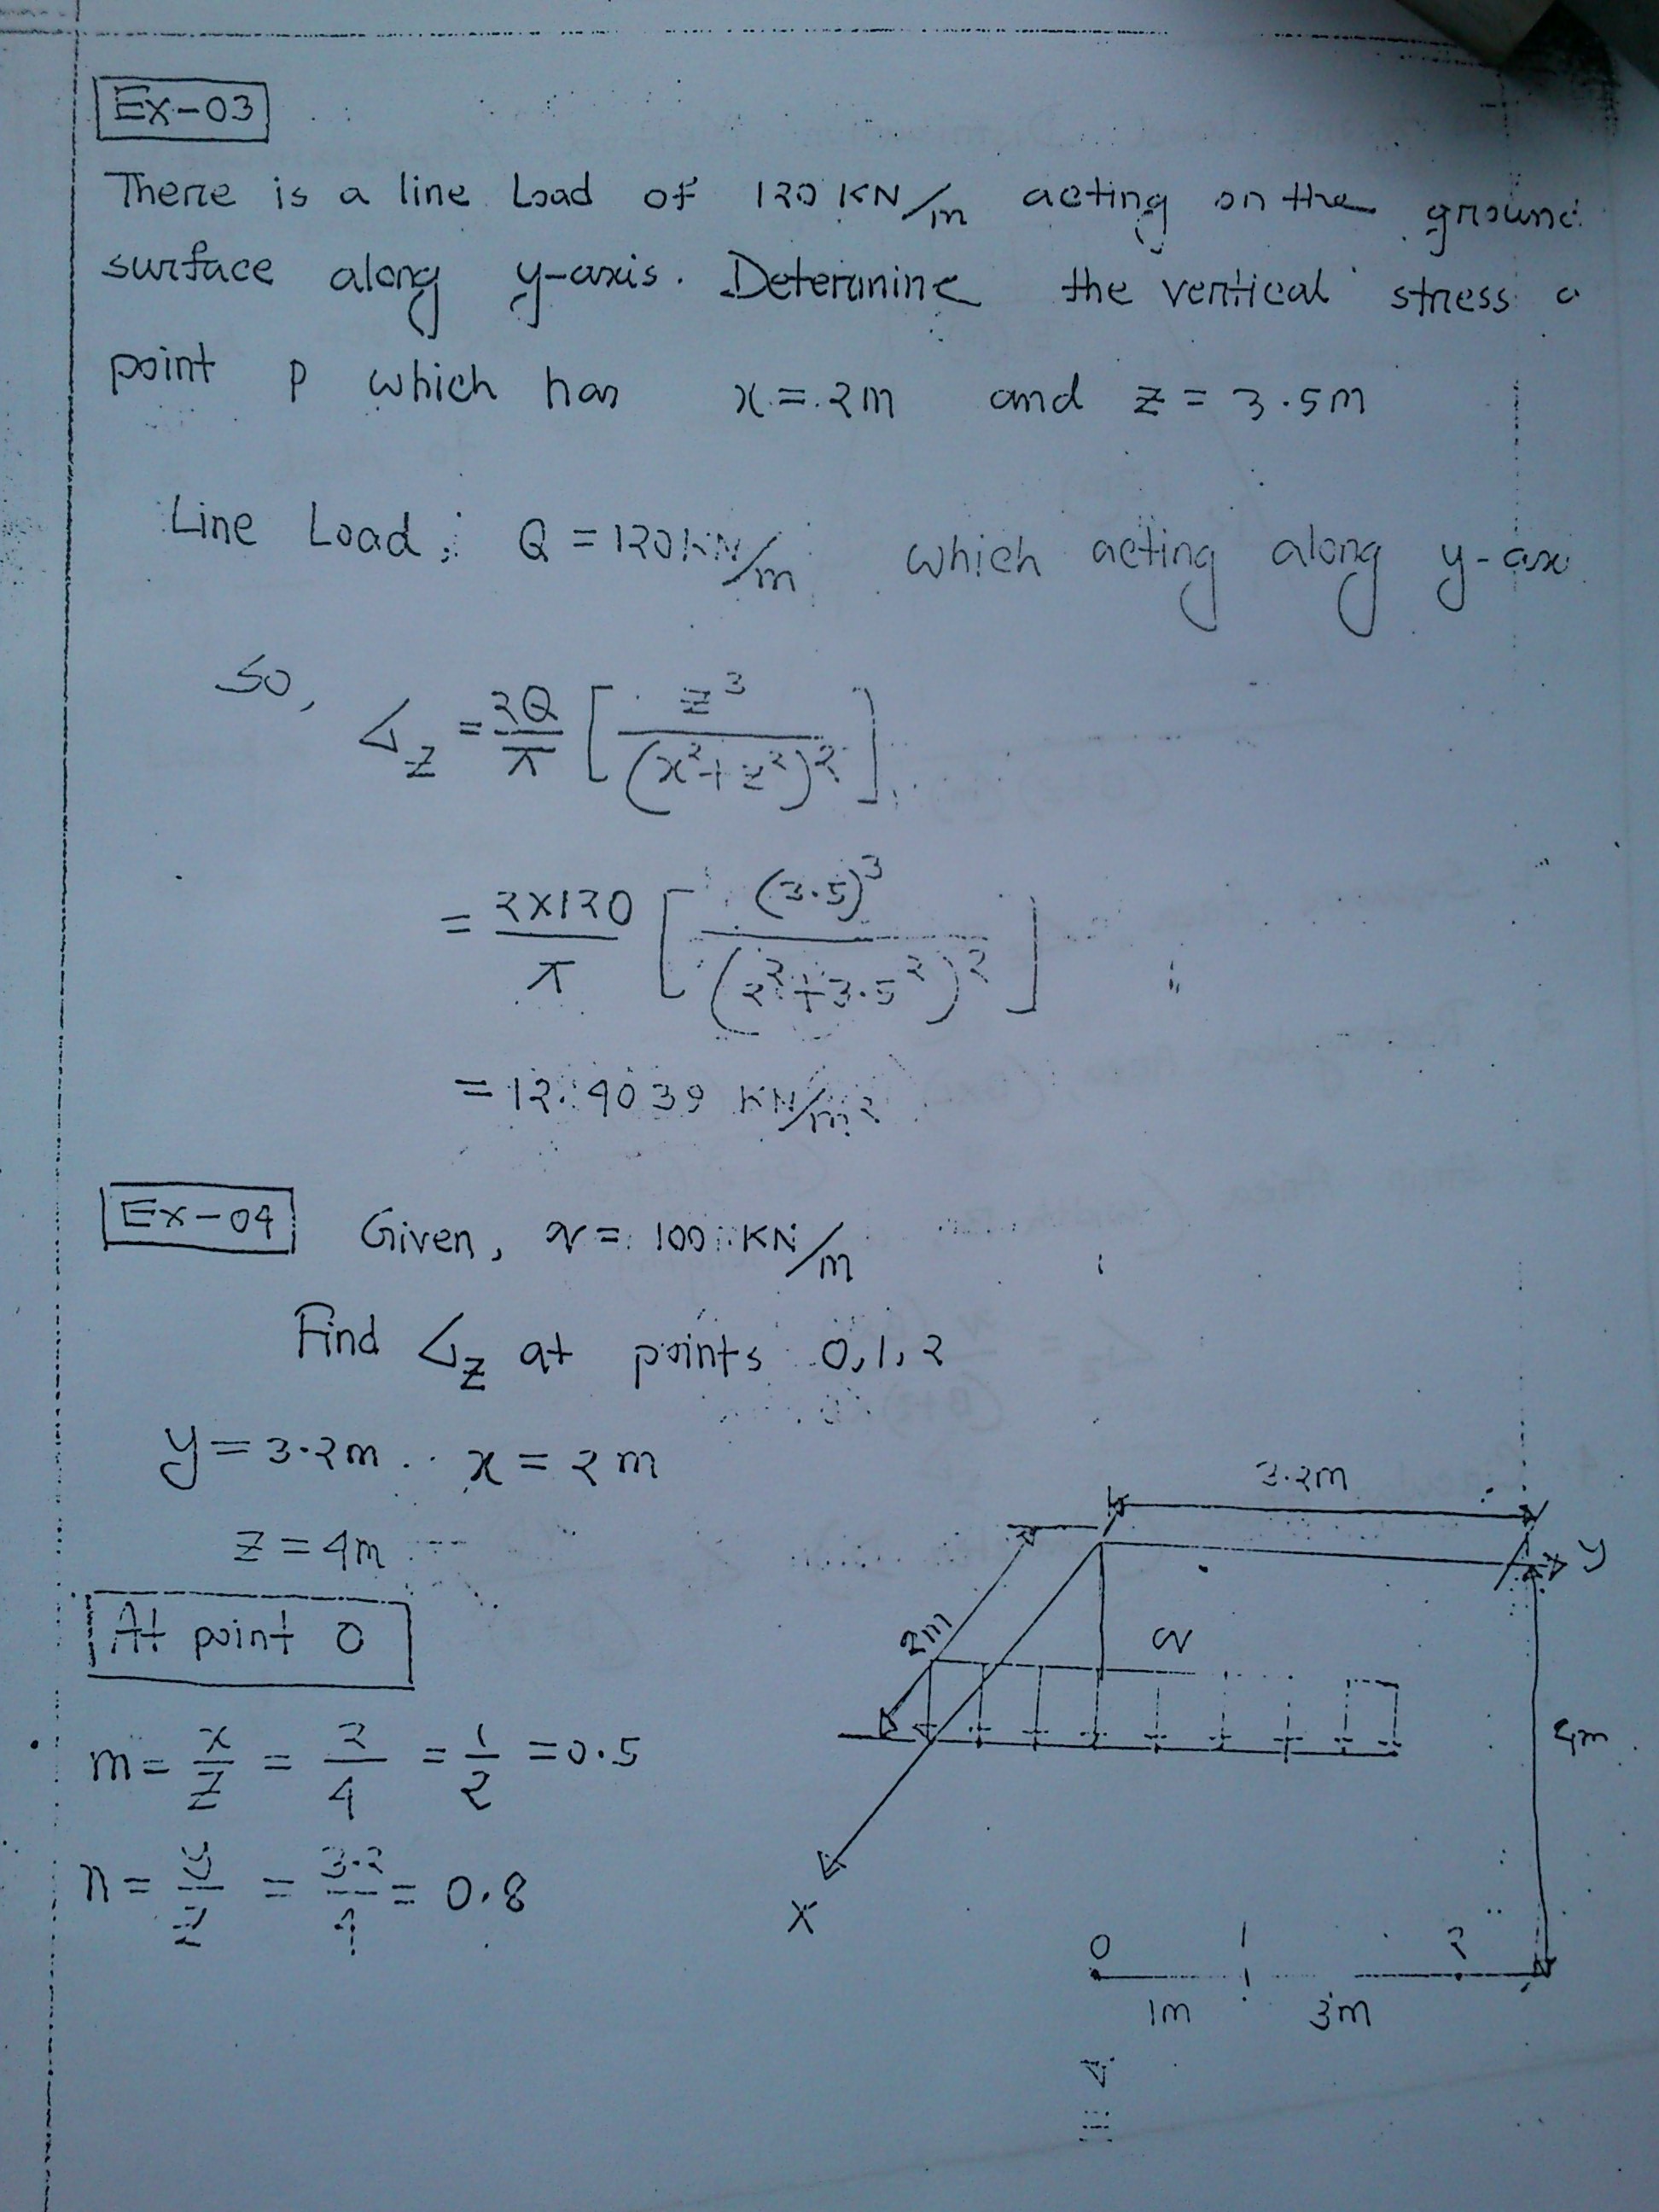 Ex-03
There is a line Load of 120 KN/m acting on the ground
surface along y-axis. Determine the vertical stress
point P which has x = 2m and z = 3.5m
Line Load, Q = 120 KN/m which acting along y-ax
So, σz = 2Q/π [z³/(x²+z²)²]
= 2×120/π [(3.5)³/(2²+3.5²)²]
= 12.4039 KN/m²
Ex-04 Given, q = 100 KN/m
Find σz at points 0, 1, 2
y = 3.2m x = 2m
z = 4m
At point 0
m = x/z = 2/4 = 1/2 = 0.5
n = y/z = 3.2/4 = 0.8
3.2m
y
2m
q
4m
X
0 1 2
1m 3m